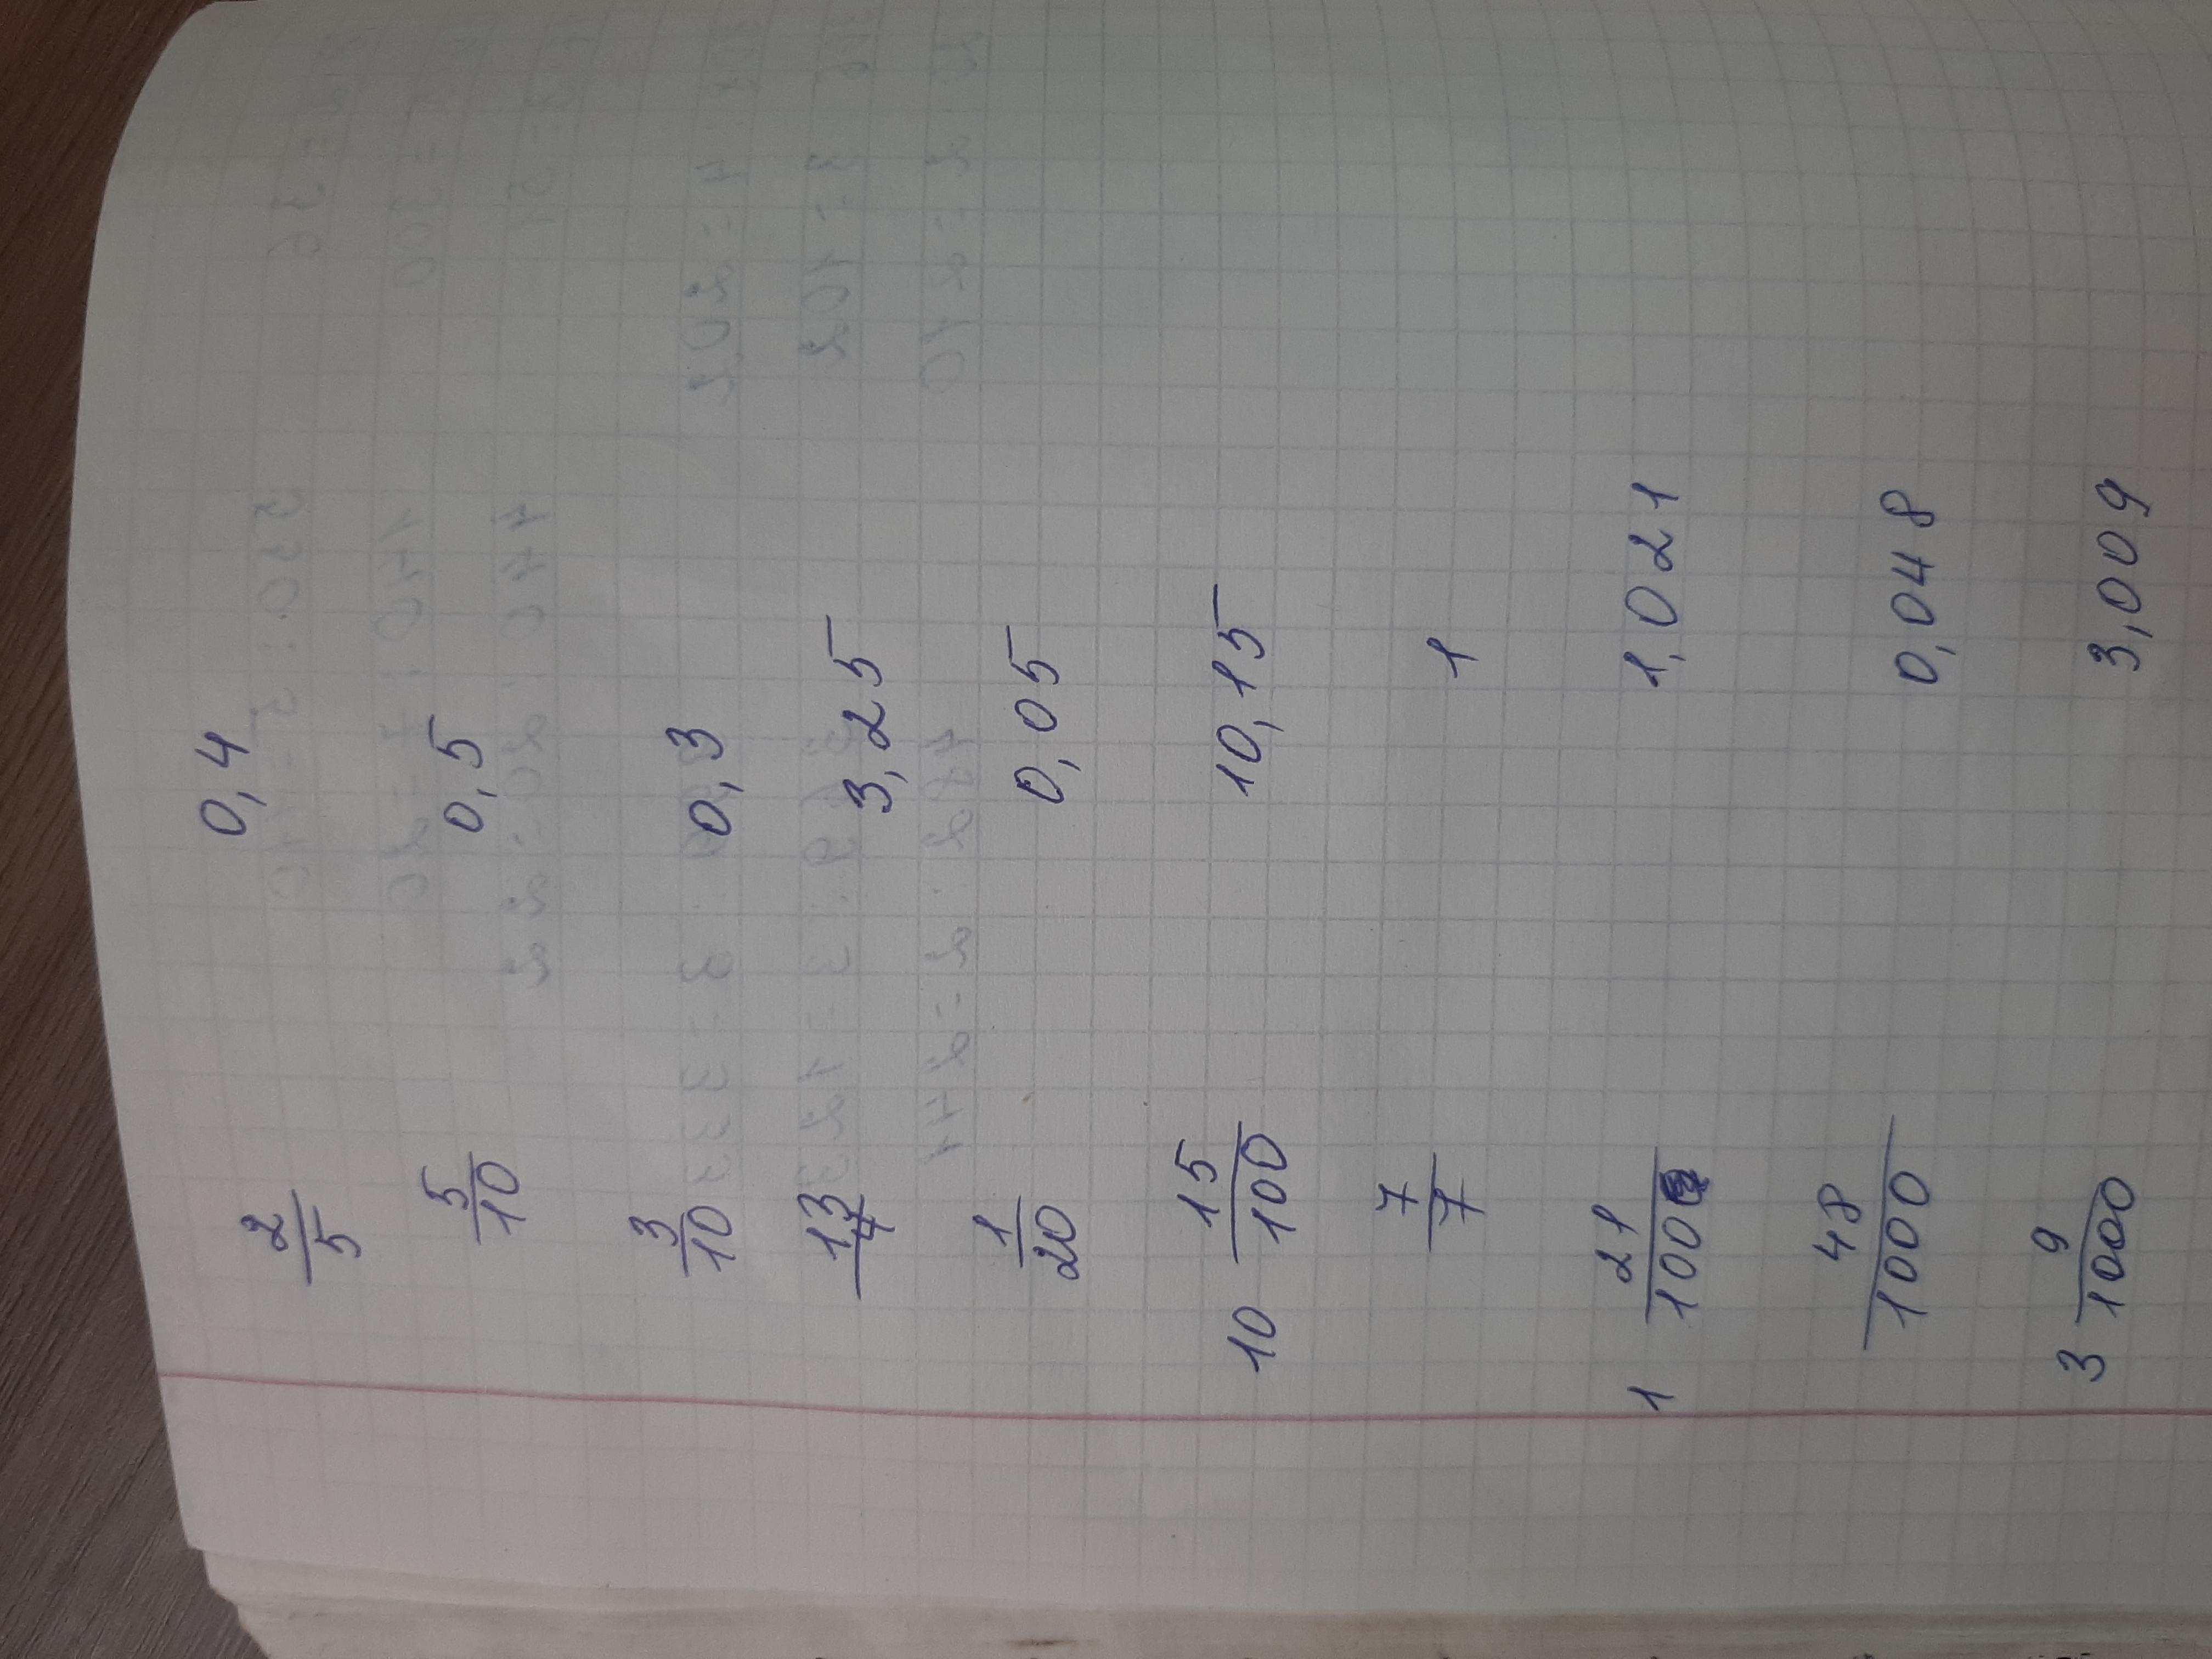 2/5 0,4
5/10 0,5
3/10 0,3
13/4 3,25
1/20 0,05
10 15/100 10,15
7/7 1
1 21/1000 1,021
48/1000 0,048
3 9/1000 3,009